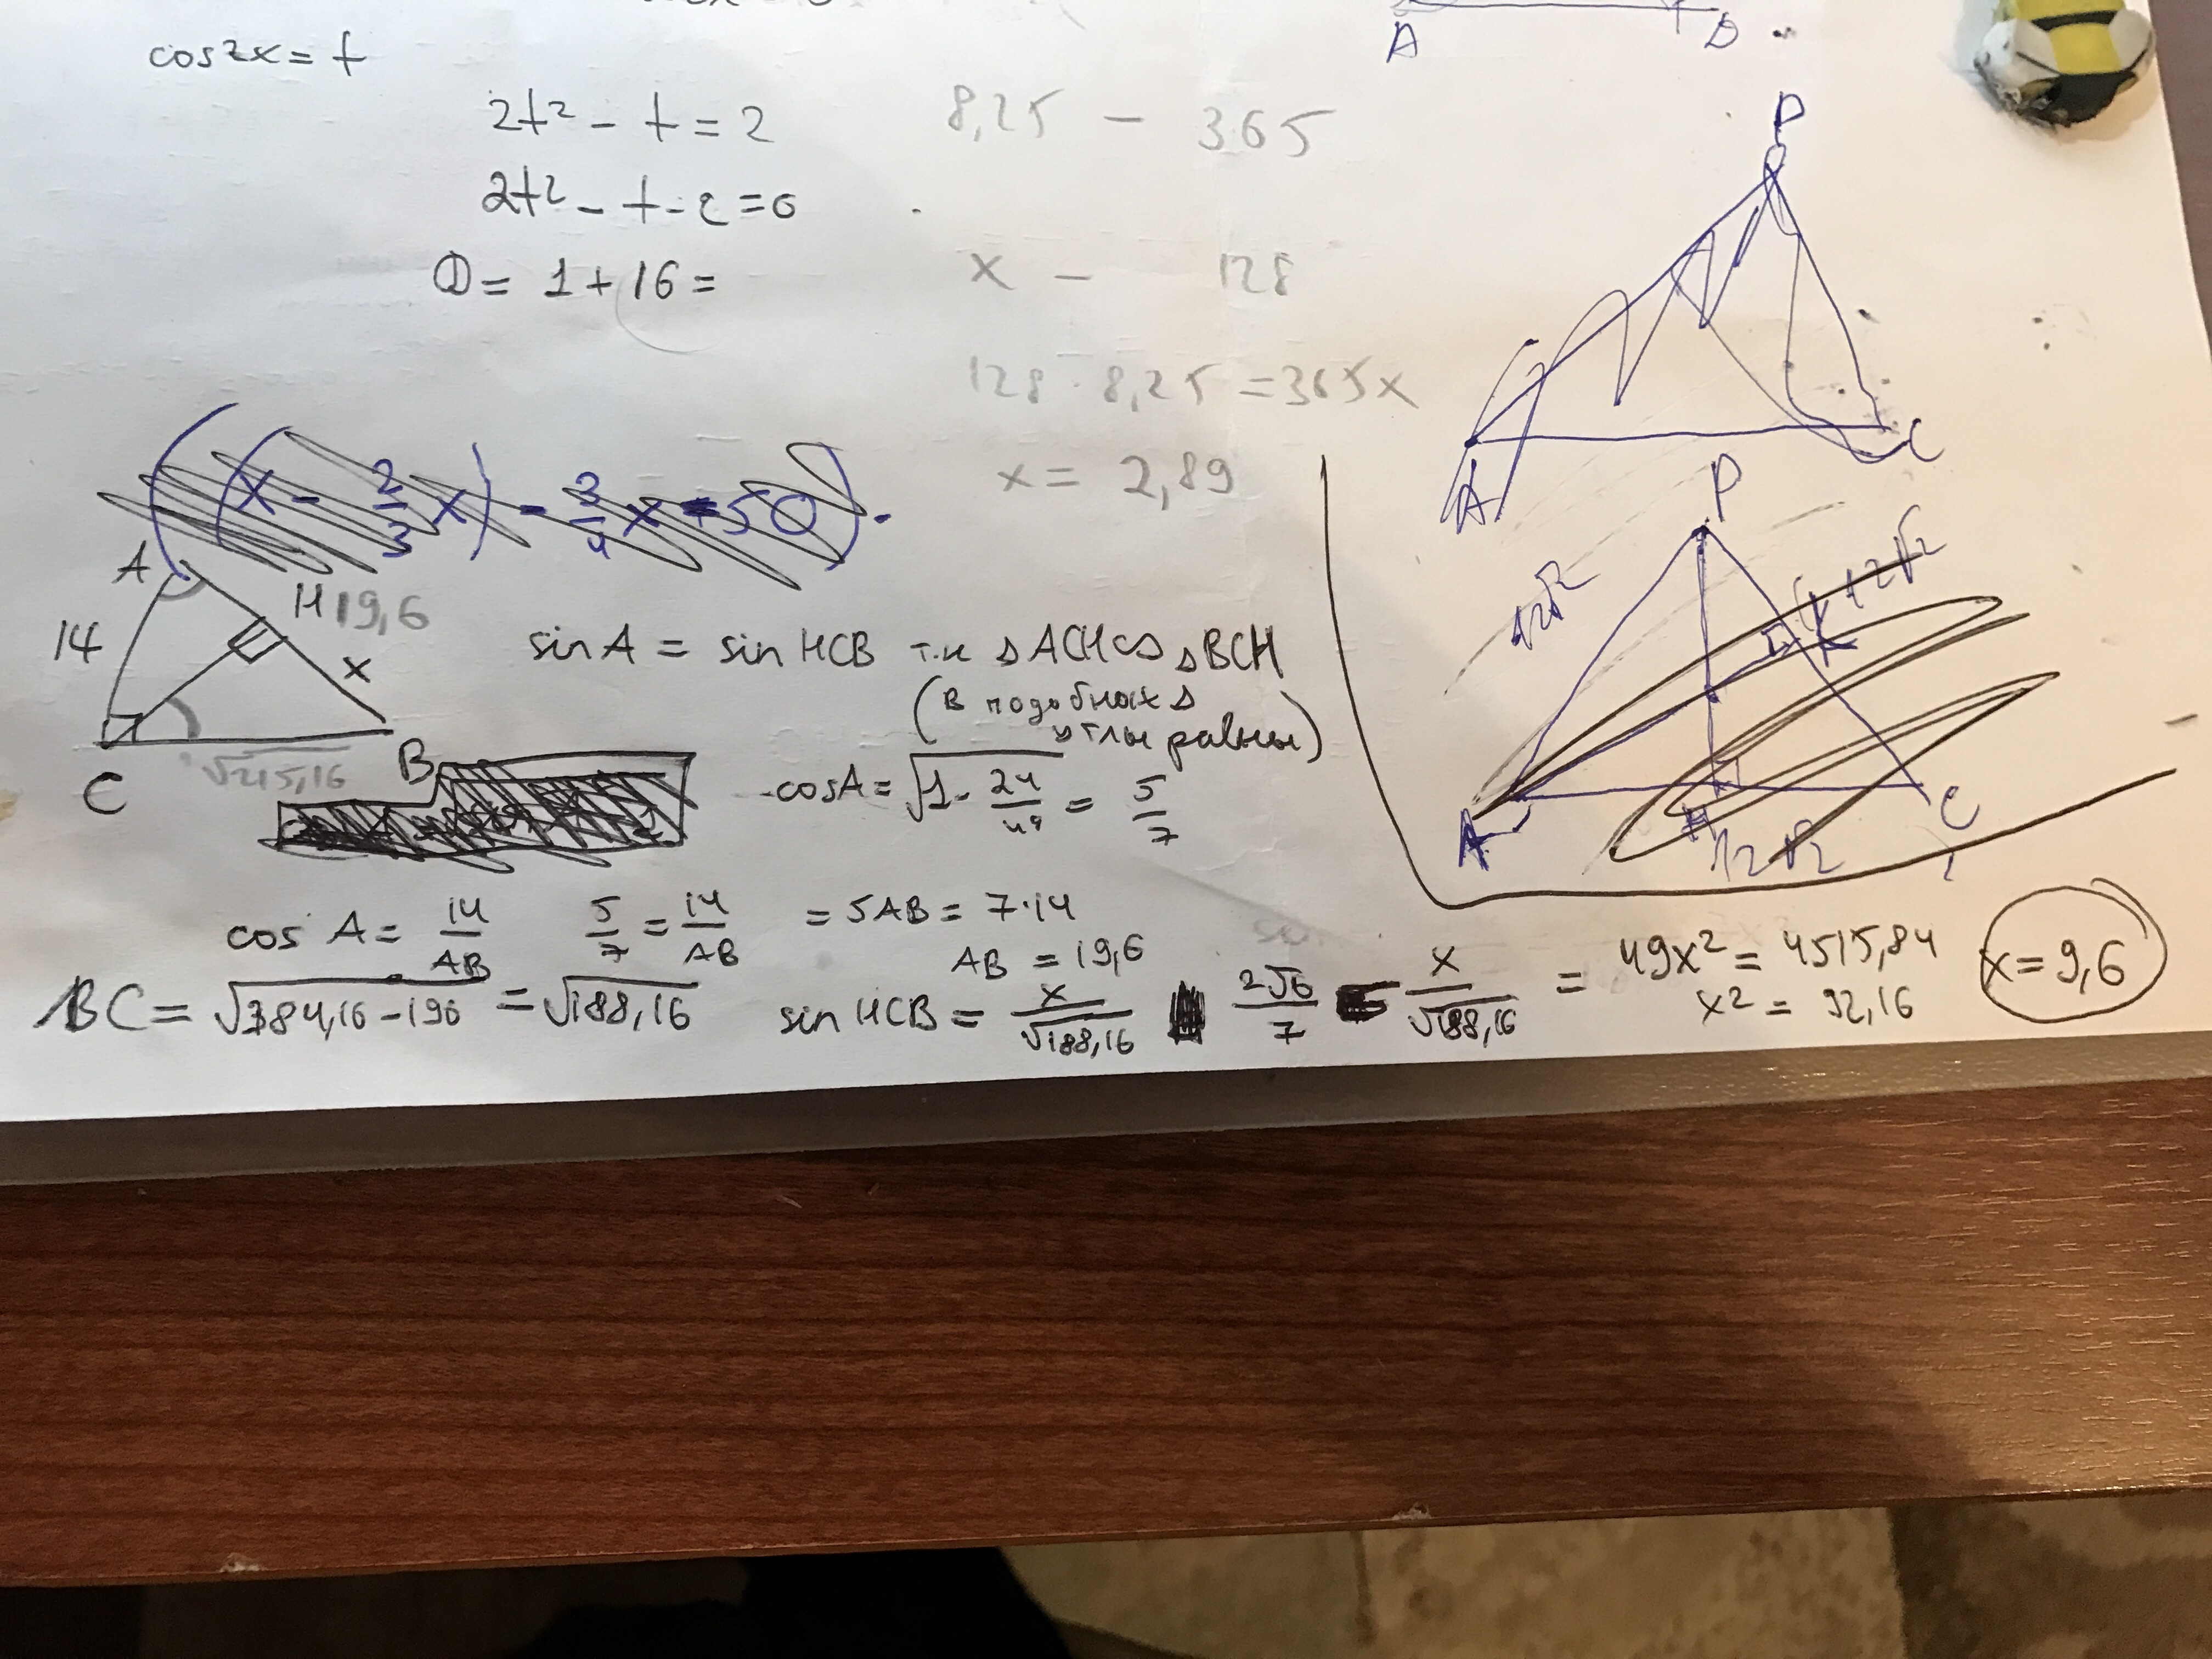 cos2x = t
2t² - t = 2
2t² - t - 2 = 0
D = 1 + 16 =
8,25 - 365
x - 128
128 · 8,25 = 365x
x = 2,89
A D
P
A C
P
12√2
12√2
A H C
12√2
((x - 2/3 x) - 3/4 x - 50) .
A
H 19,6
14
x
C B
√215,16
sin A = sin HCB т.к △ACH ∽ △BCH
(в подобных △
углы равны)
cos A = √(1 - 24/49) = 5/7
cos A = 14/AB 5/7 = 14/AB = 5AB = 7·14
AB = 19,6
BC = √(384,16 - 196) = √188,16
sin HCB = x/√188,16 2√6/7 = x/√188,16 = 49x² = 4515,84
x² = 92,16
x = 9,6